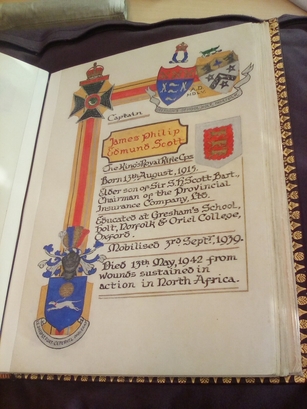 Captain
James Philip
Edmund Scott
The King's Royal Rifle Cps.
Born 13th August, 1915.
Elder son of Sir S.H. Scott Bart.,
Chairman of the Provincial
Insurance Company, Ltd.
Educated at Gresham's School,
Holt, Norfolk & Oriel College,
Oxford.
Mobilised 3rd Sept., 1939.
Died 13th May, 1942 from
wounds sustained in
action in North Africa.